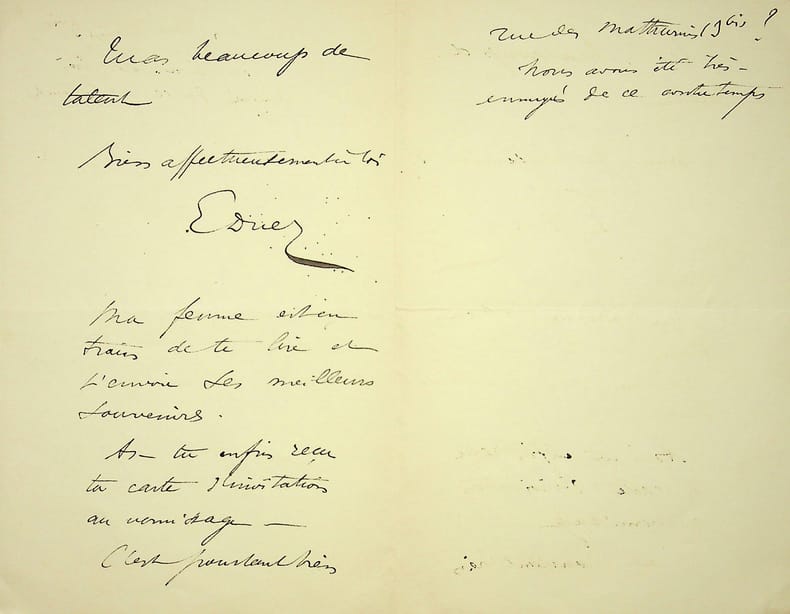 Tu as beaucoup de
talent
Bien affectueusement à toi
E Duez
Ma femme est en
train de te lire et
t'envoie ses meilleurs
souvenirs.
As-tu enfin reçu
ta carte d'invitation
au vernissage —
C'est pourtant bien
rue des Mathurins 19 bis ?
Nous avons été très-
ennuyés de ce contretemps